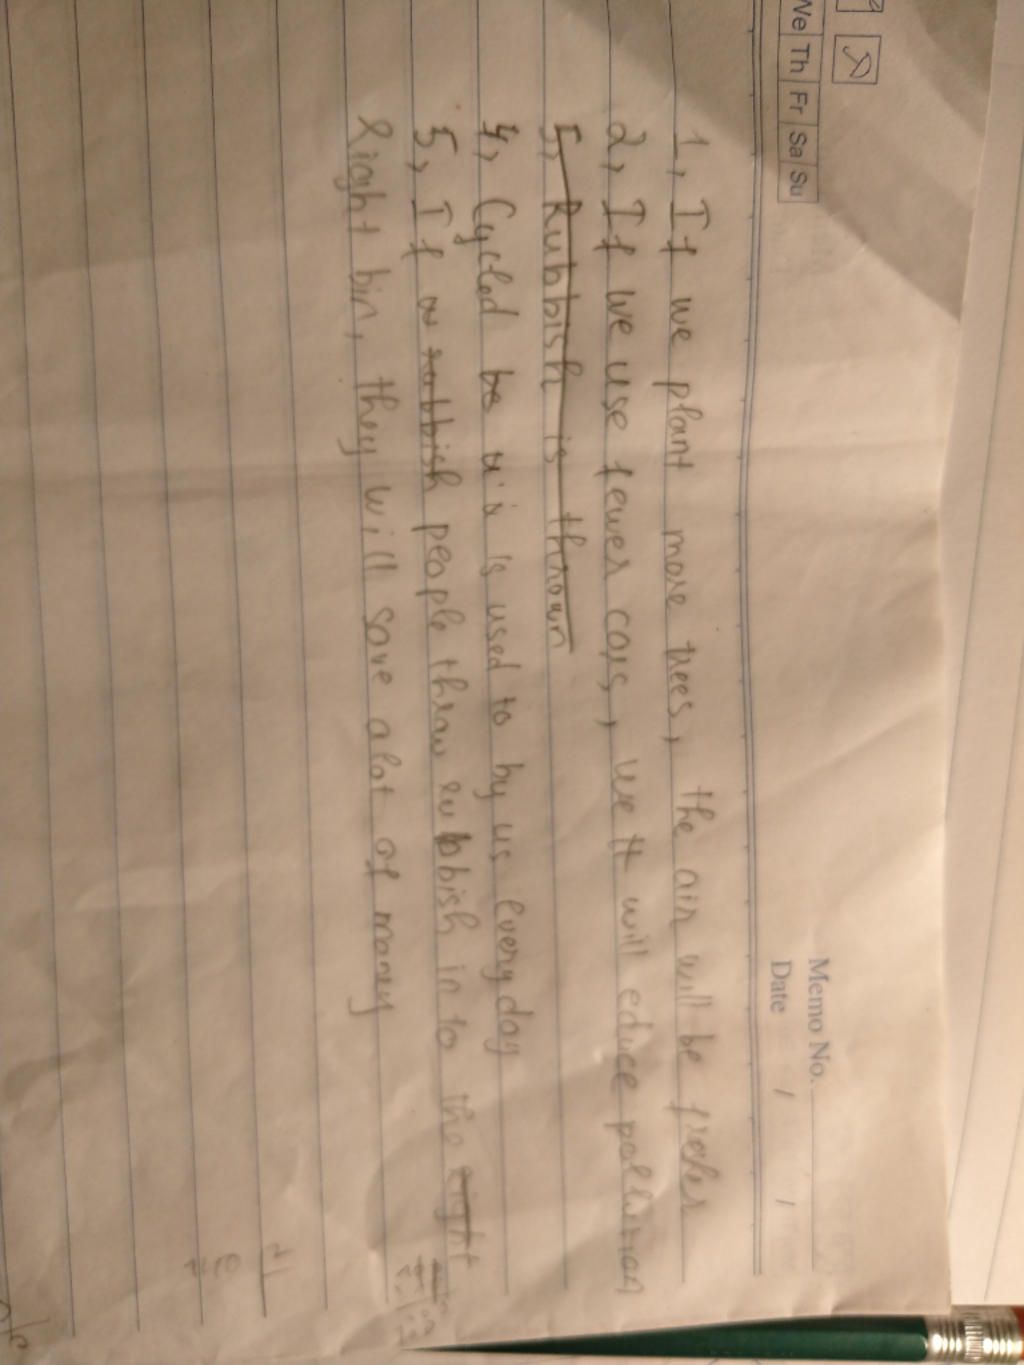 We Th Fr Sa Su
Memo No.
Date / /
1, If we plant more trees, the air will be fresher
2, If we use fewer cars, we it will educe pollution
5, Rubbish is thrown
4, Cycled be is used to by us every day
5, If rubbish people throw rubbish in to the right
right bin, they will save alot of money